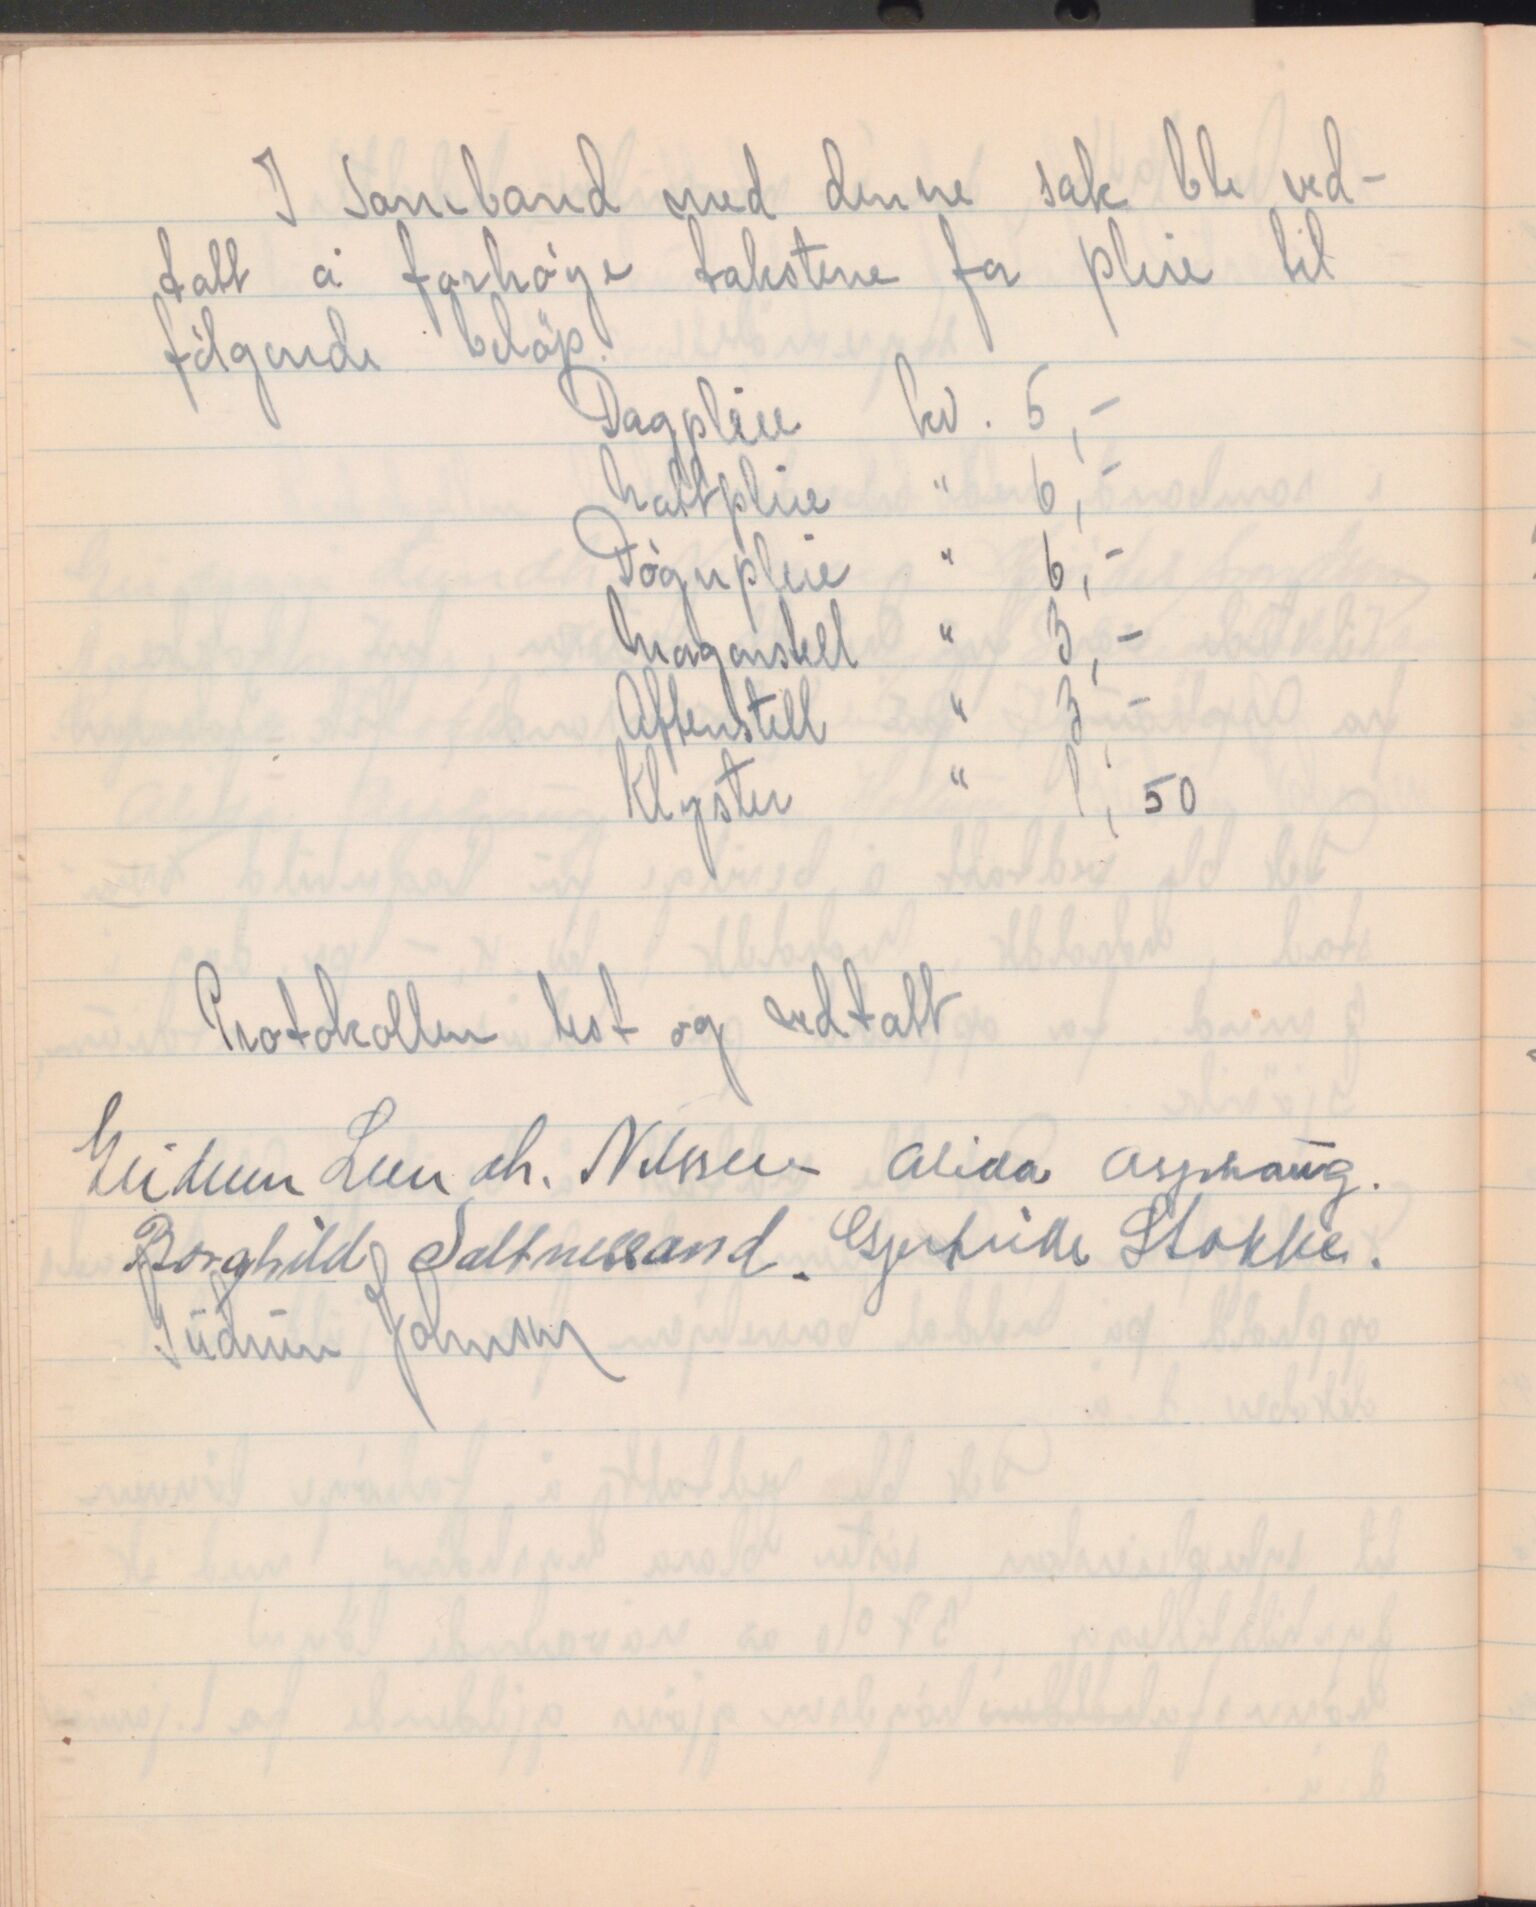 I samband med denne sak ble ved-
tatt å forhöye takstene for pleie til
fölgende belöp.
Dagpleie kr. 5,-
Nattpleie " 6,-
Dögnpleie " 6,-
Morgenstell " 3,-
Aftenstell " 3,-
Klyster " 1,50
Protokollen lest og vedtatt
Nilssen Alida Asphaug.
Borghild Saltnessand. Gjertrude Stokke.
Gudrun Johnsen